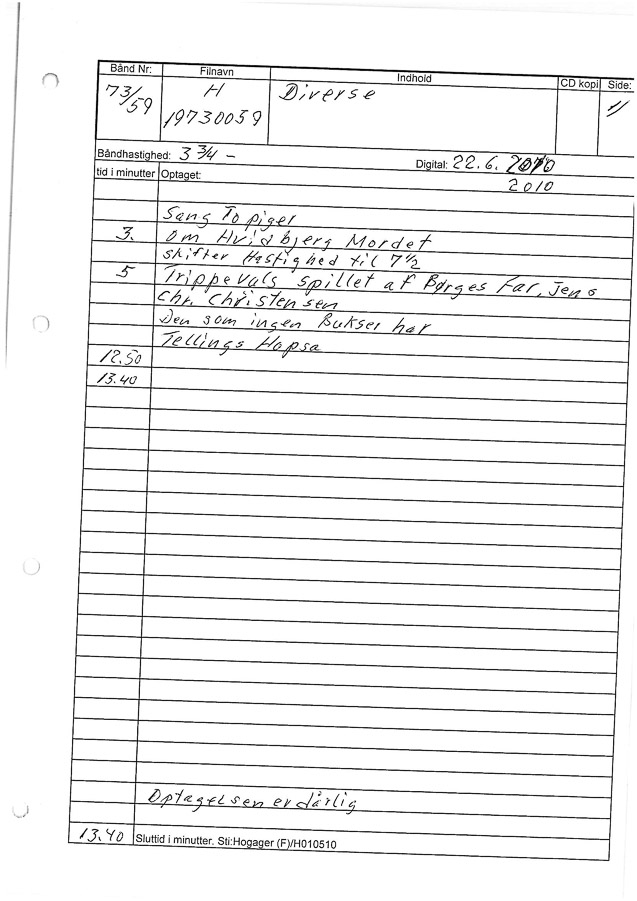 Bånd Nr: Filnavn Indhold CD kopi Side:
73/59 H Diverse 1/
19730059
Båndhastighed: 3 3/4 - Digital: 22.6. 2010
tid i minutter Optaget: 2010
Sang To piger
3. om Hvidbjerg Mordet
skifter Hastighed til 7 1/2
5 Trippevals spillet af Børges Far, Jens
Chr. Christensen
Den som ingen Bukser har
Tellings Hopsa
12.50
13.40
Optagelsen er dårlig
13.40 Sluttid i minutter. Sti:Hogager (F)/H010510